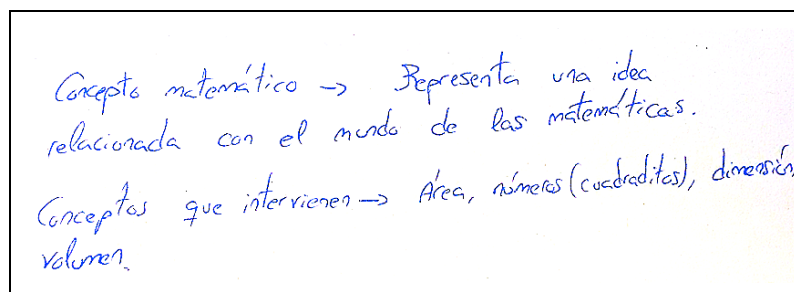 Concepto matemático → Representa una idea
relacionada con el mundo de las matemáticas.
Conceptos que intervienen → Área, números (cuadraditos), dimensión,
volumen.